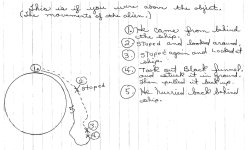 This is if you were above the object.
(The movements of the alien.)
① He came from behind
the ship.
② Stoped and looked around.
③ Stoped again and looked at
ship.
④ Took out Black funnel,
and stuck it in ground.
Then pulled it back up.
⑤ He hurried back behind
ship.
①
②
stoped
③
④